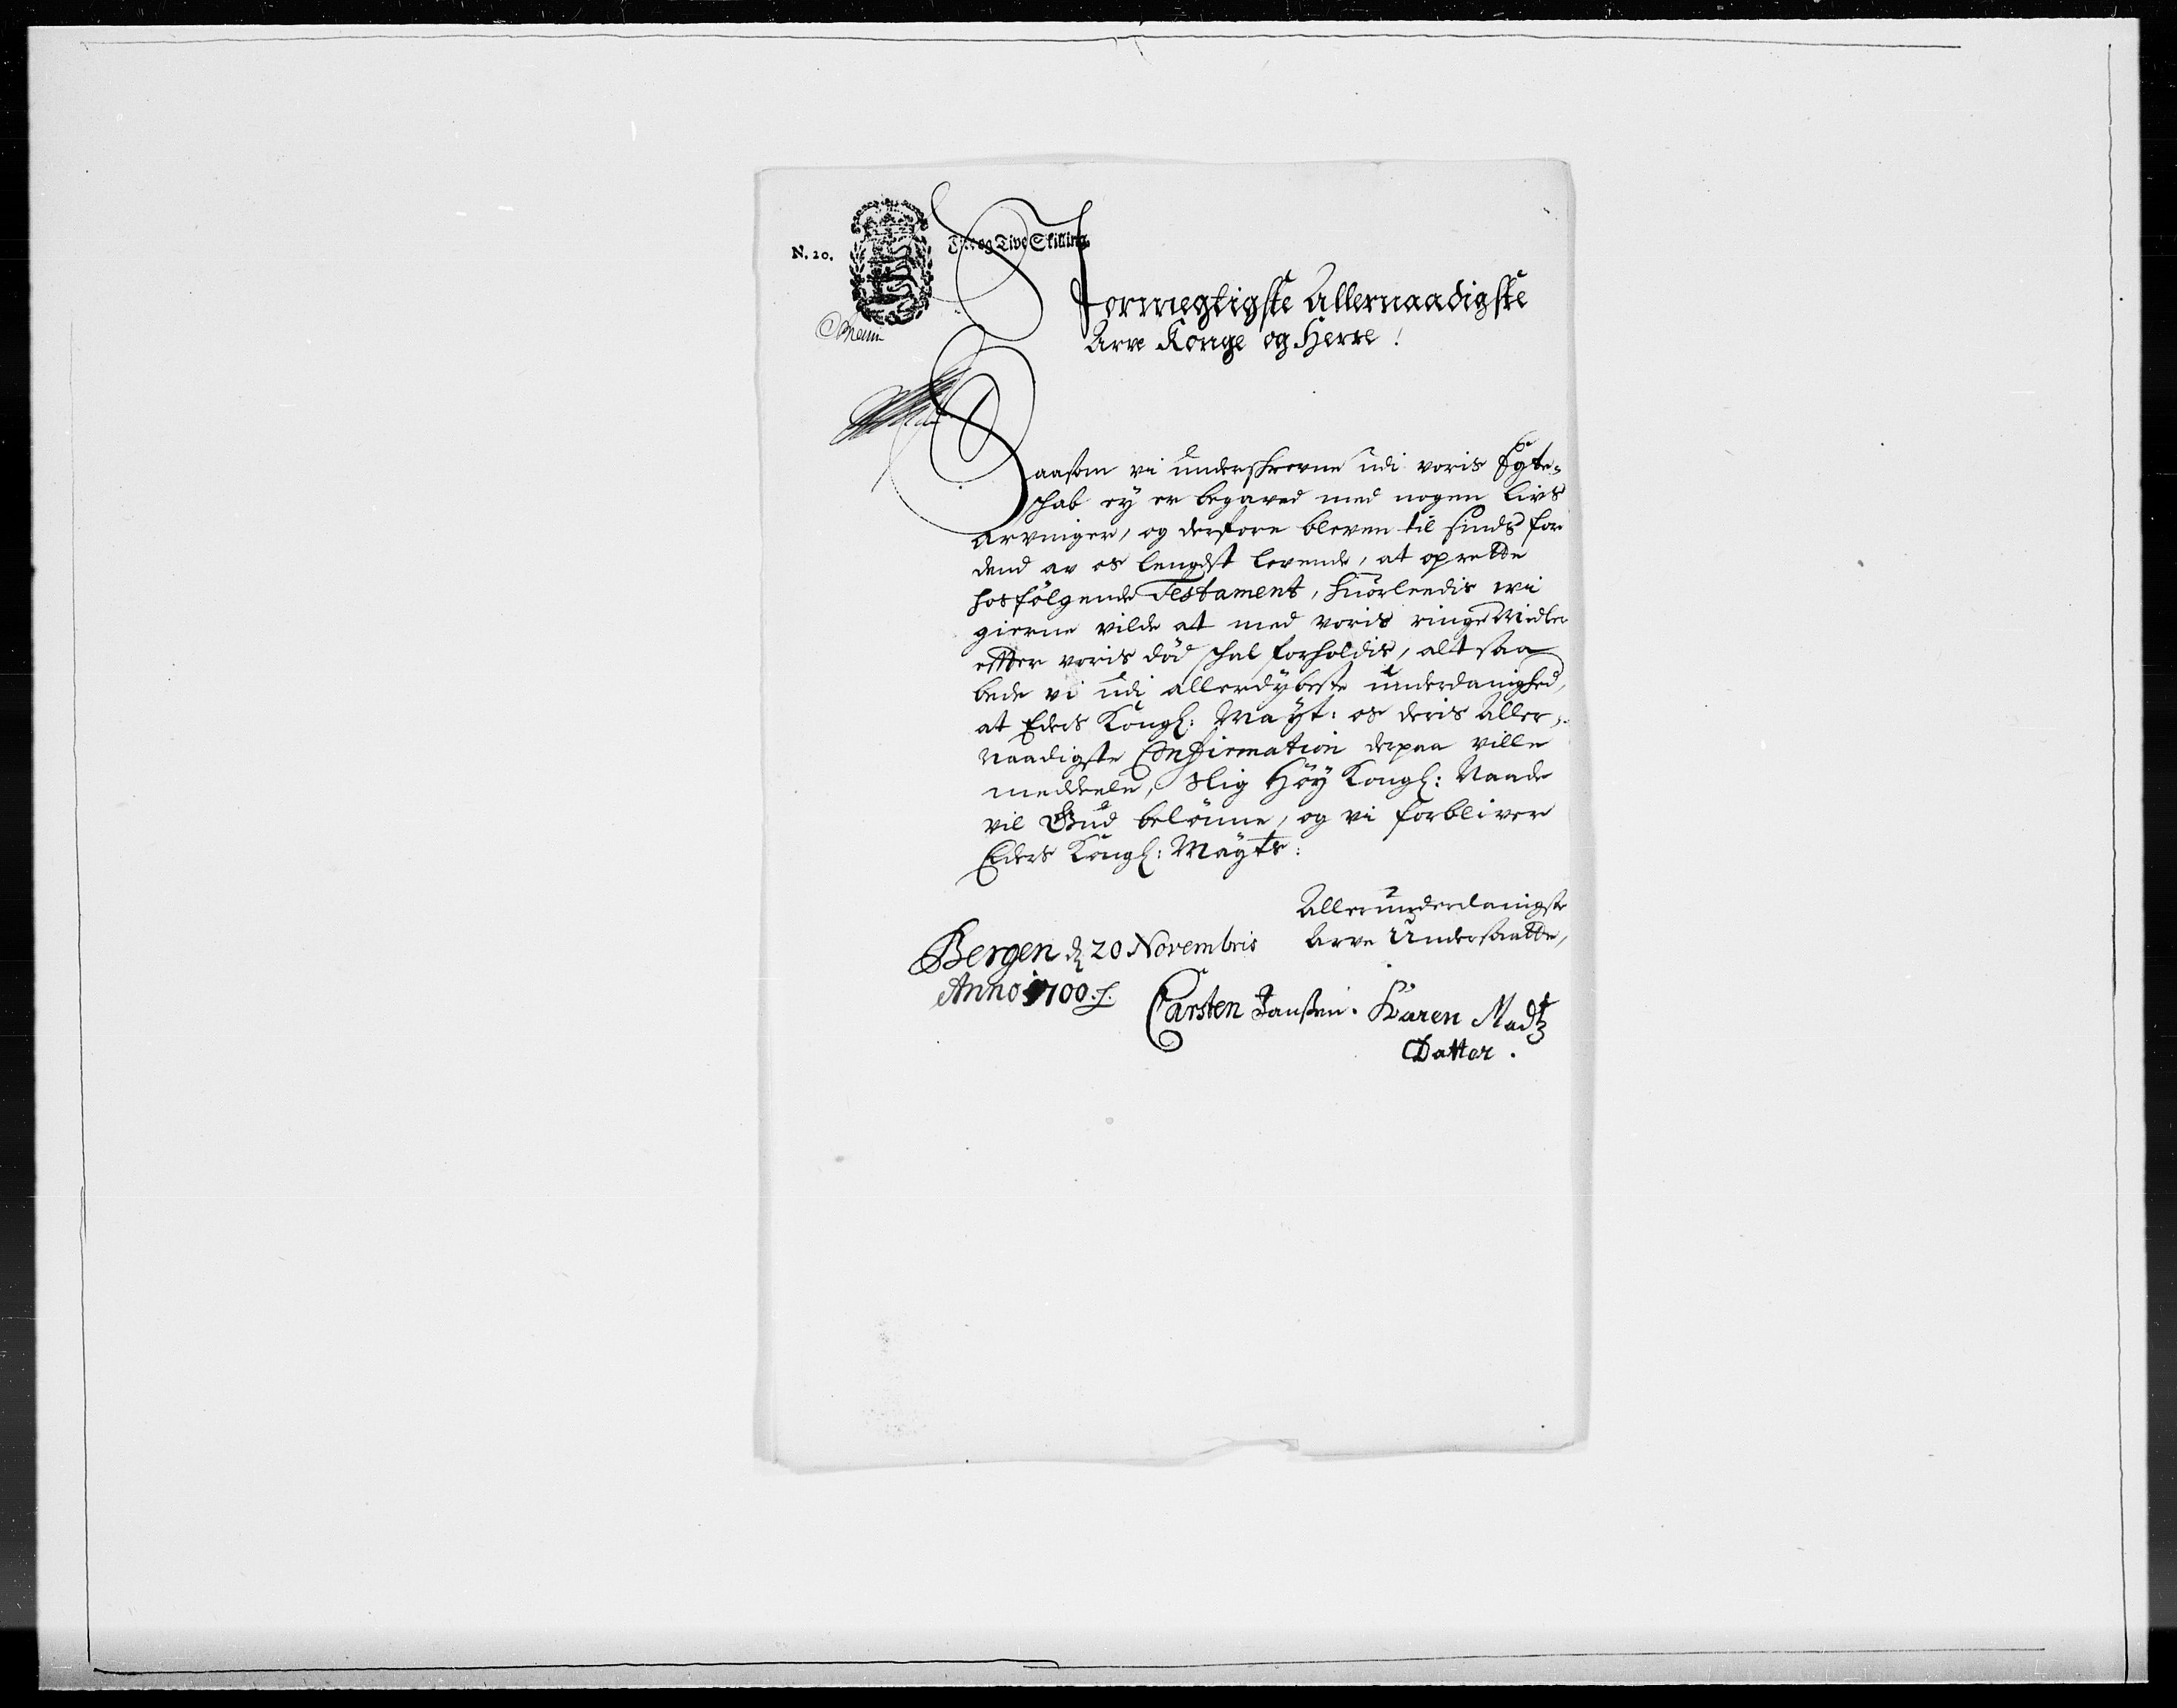 N. 20.
Fire og Tive Skilling
Stormegtigste Allernaadigste
Arve Konge og Herre!
Saasom vi underskrevne udi voris Egte-
skab ey er begaved med nogen Livs
Arvinger, og derfore bleven til sinds for
dend av os lengdst levende, at oprette
hosfølgende Testament, huorleedis wi
gierne vilde at med voris ringe Midler
effter voris død skal forholdis, alt saa
bede vi udi allerdybeste underdanighed,
at Eders Kongl: Mayt: os deris Aller-
naadigste Confirmation derpaa ville
meddeele, Slig Høy Kongl: Naade
vil Gud belønne, og vi forbliver
Eders Kongl: Mayts:
Allerunderdanigste
Arve Undersaatte,
Bergen d 20 Novembris
Anno 1700.
Carsten Janssen. Karen Madtz
Datter.